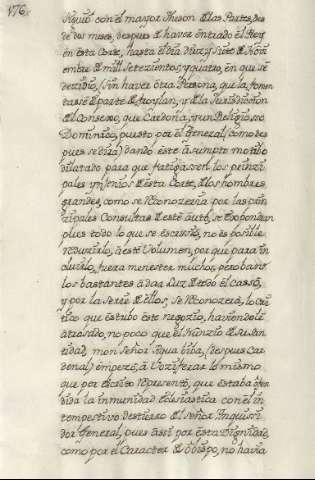 176.
siguió con el mayor theson de las Partes, des
de dos meses, despues de haver entrado el Rey
en esta Corte, hasta el dia diez, y siete de Novi
embre de mill setezientos, y quatro, en que se
dezidió, (sin haver otra Persona, que la fomen
tasse de parte de Froylan, y de la Jurisdiccion
del Consexo, que Cardona, y un Religiosso
Dominico, puesto por el General, (como des
pues se dirá) dando éste assumpto motibo
dilatado para que fatigassen los prinzi
pales ynjenios de esta Corte, de los hombres
grandes, como se reconozeria por las prin
zipales Consultas de este auto, se
plus todo lo que se escrivió, no es posible
reduzirlo, á esté Volumen, por que para in
cluirlo, fuera menester mucho, pero
los bastantes á dar luz de todo el casso,
y por la serie de ellos, se reconozerá, lo cri
tico que estubo este negozio, haviendole
atrasado, no poco que el Nunzio de su San
tidad, monseñor Aqua biba, (despues Car
denal) empezó, á Voziferar lo mismo
que por escrito representó, que estaba ofen
dida la inmunidad Eclesiastica con el in
tempestivo destierro del señor Inquisi
dor General, pues assi por esta Dignidad,
como por el Caracter de Obispo, no havia